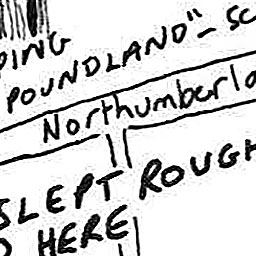 PING
POUNDLAND" - SC
Northumberla
SLEPT ROUGH
HERE